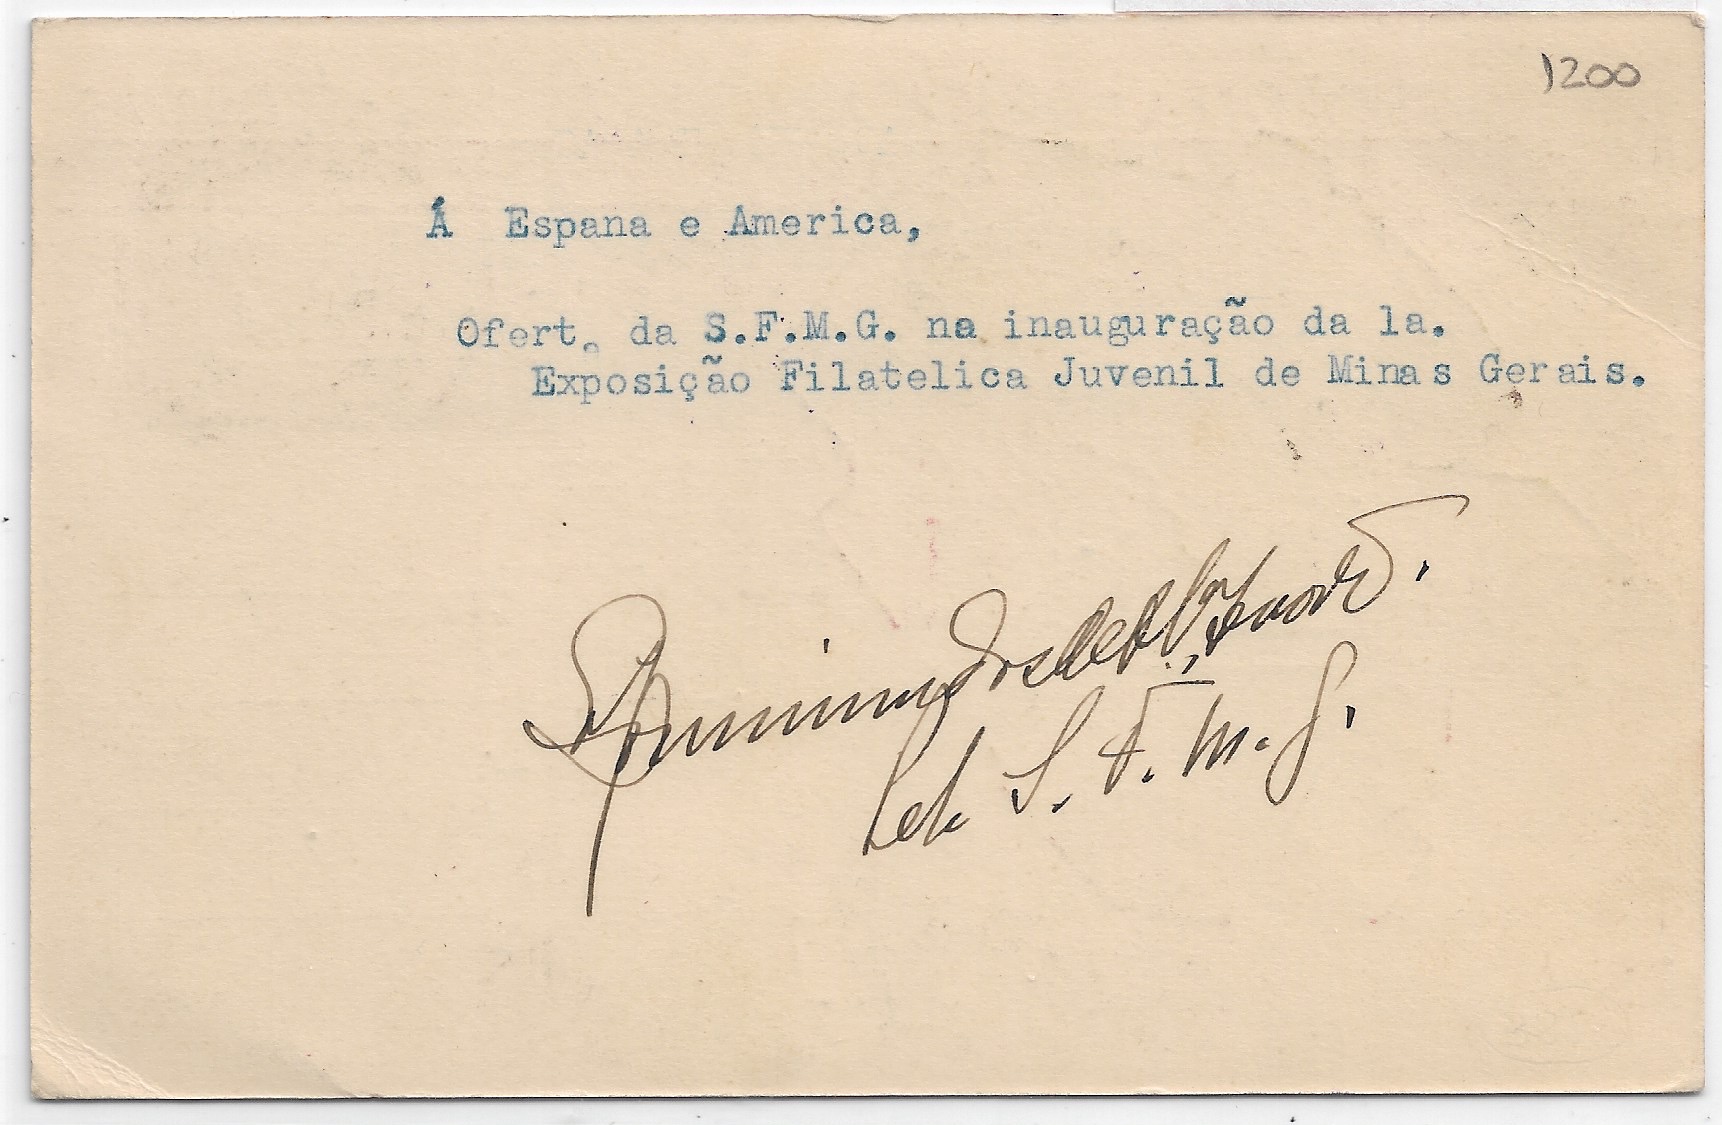 1200
Á Espana e America,
Ofert. da S.F.M.G. na inauguração da 1a.
Exposição Filatelica Juvenil de Minas Gerais.
S. F. M. G.